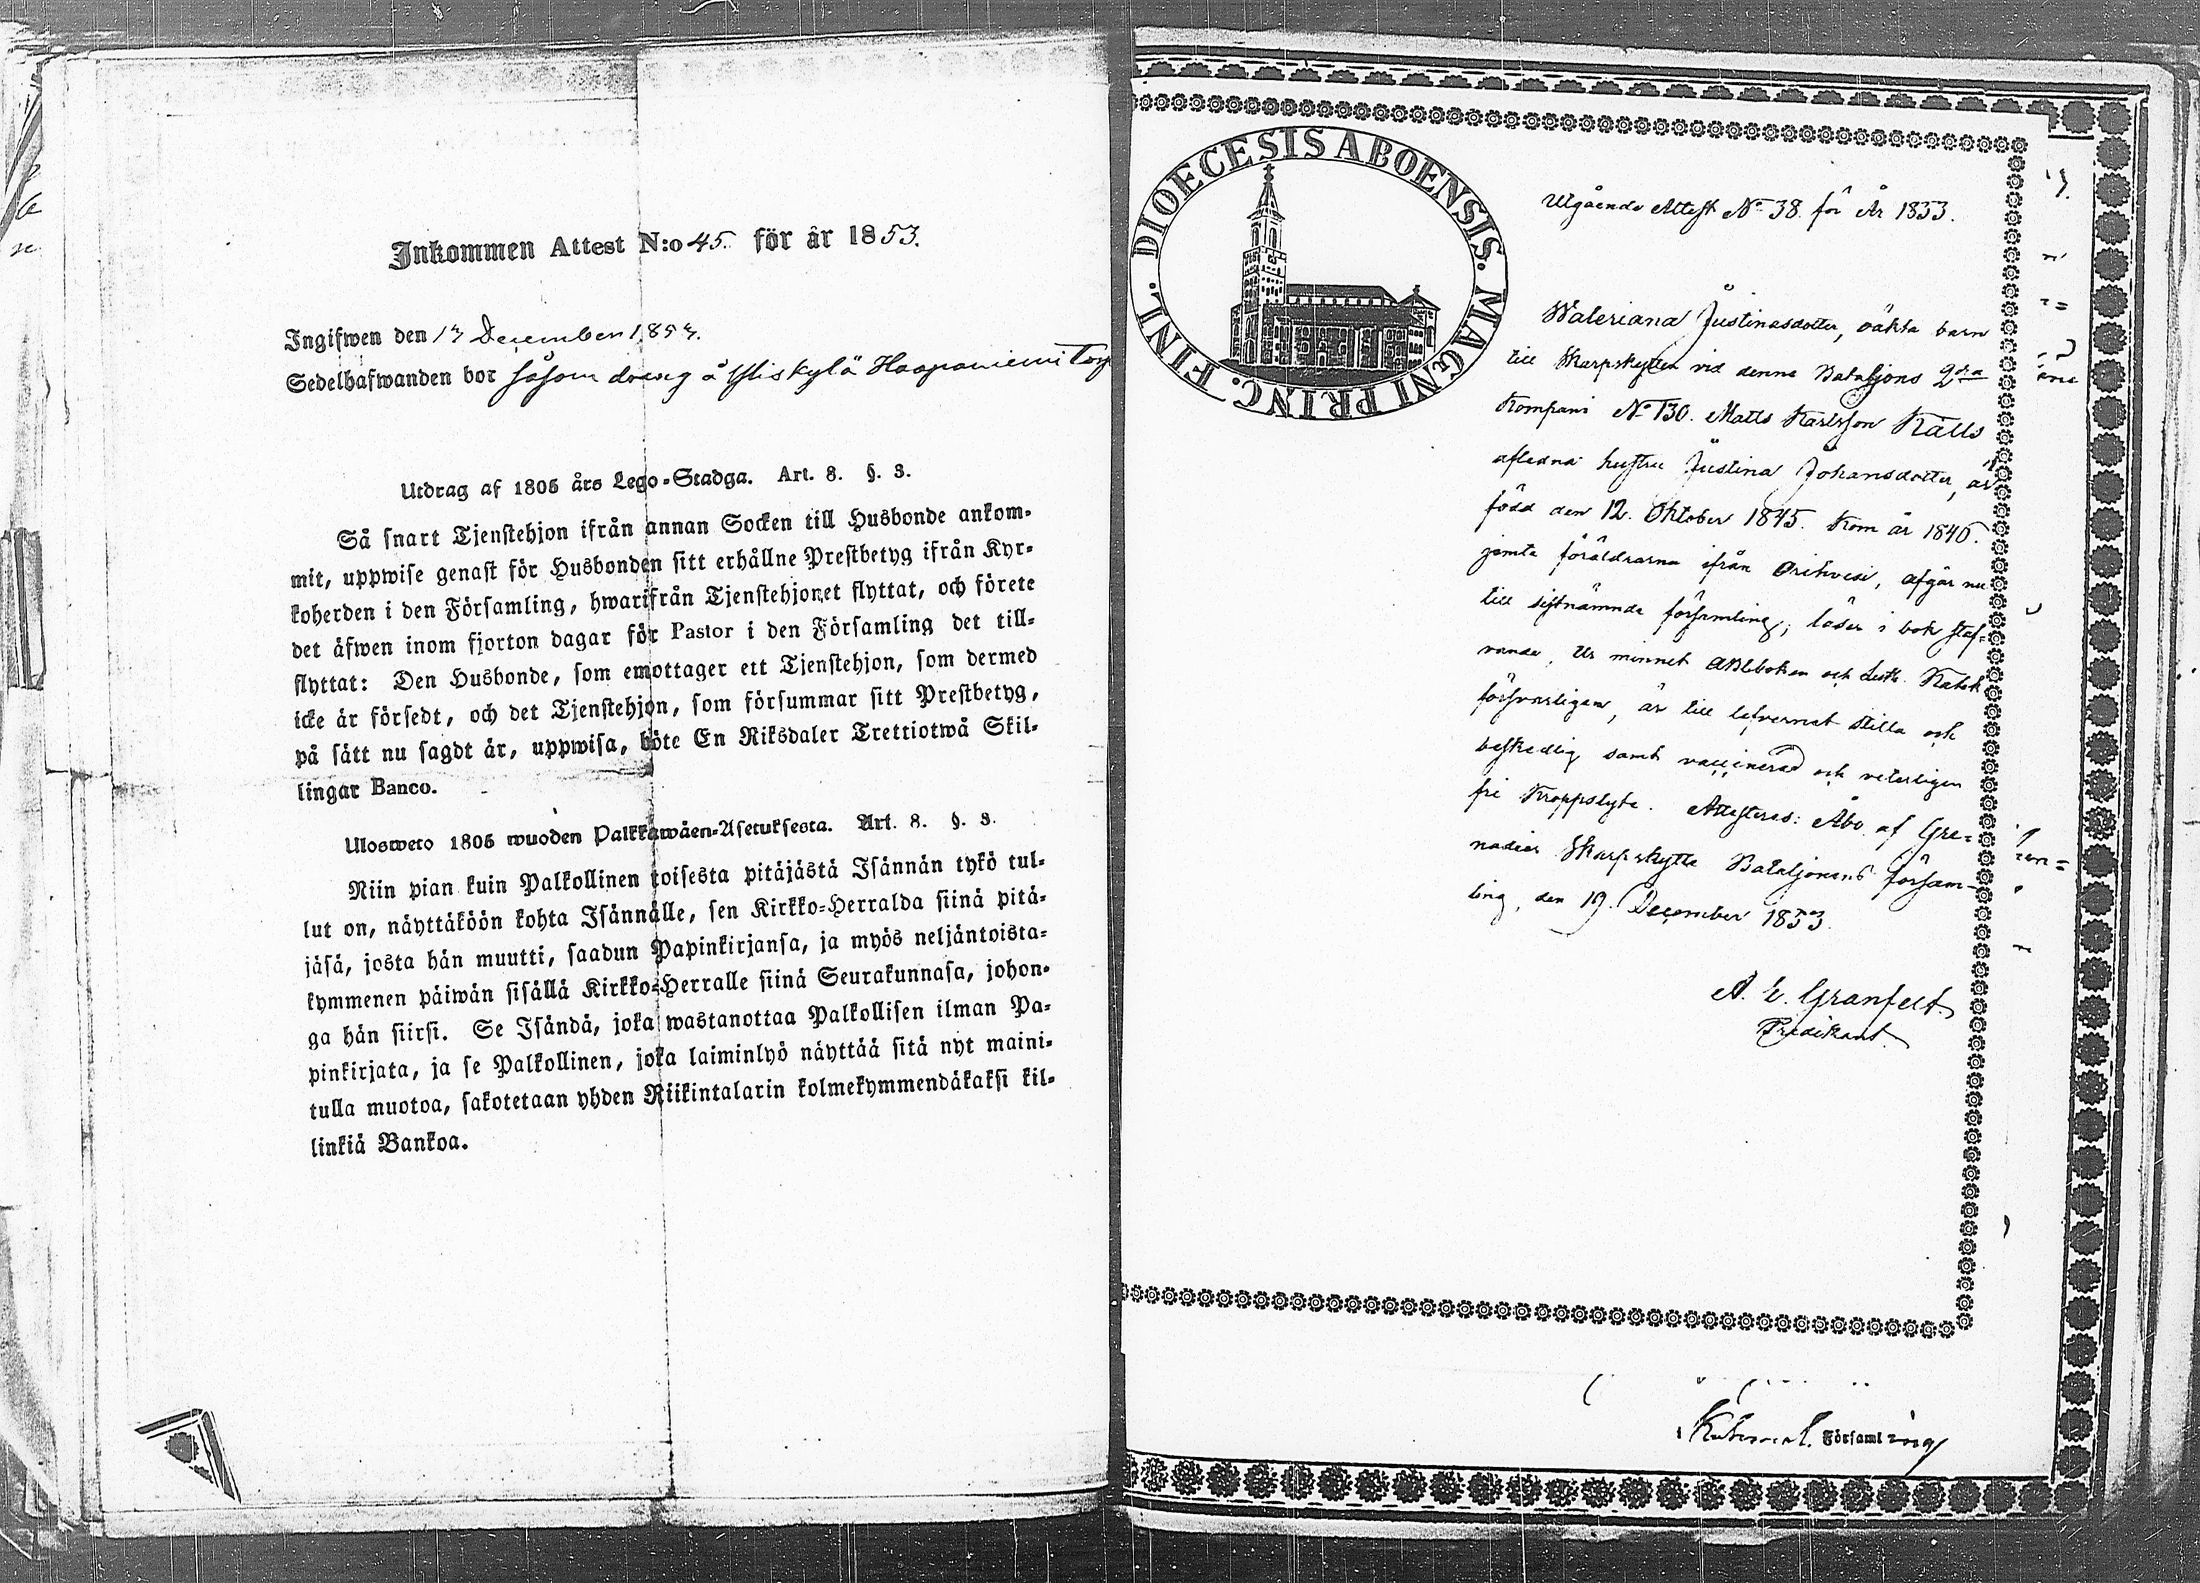 Inkommen Attest N:o 45. för år 1853.
Ingifwen den 17 December 1853.
Sedelhafwanden bor såsom dräng å Yliskylä Haapaniemi Torp
Utdrag af 1805 års Lego-Stadga. Art. 8. §. 3.
Så snart Tjenstehjon ifrån annan Socken till Husbonde ankom-
mit, uppwise genast för Husbonden sitt erhållne Prestbetyg ifrån Kyr-
koherden i den Församling, hwarifrån Tjenstehjonet flyttat, och förete
det äfwen inom fjorton dagar för Pastor i den Församling det till-
flyttat: Den Husbonde, som emottager ett Tjenstehjon, som dermed
icke är försedt, och det Tjenstehjon, som försummar sitt Prestbetyg,
på sätt nu sagdt är, uppwisa, böte En Riksdaler Trettiotwå Skil-
lingar Banco.
Ulosweto 1805 wuoden Palkkawäen-Asetuksesta. Art. 8. §. 3.
Niin pian kuin Palkollinen toisesta pitäjästä Isännän tykö tul-
lut on, näyttäköön kohta Isännälle, sen Kirkko-Herralda siinä pitä-
jäsä, josta hän muutti, saadun Papinkirjansa, ja myös neljäntoista-
kymmenen päiwän sisällä Kirkko-Herralle siinä Seurakunnasa, johon-
ga hän siirsi. Se Isändä, joka wastanottaa Palkollisen ilman Pa-
pinkirjata, ja se Palkollinen, joka laiminlyö näyttää sitä nyt maini-
tulla muotoa, sakotetaan yhden Riikintalarin kolmekymmendäkaksi kil-
linkiä Bankoa.
DIOECESIS ABOENSIS. MAGNI PRINC. FINL.
Utgående Attest No 38. för År 1853.
Waleriana Justinasdotter, oäkta barn
till Skarpskytten vid denne Bataljons 2dra
Kompani No 130. Matts Karlsson Källs
afledna hustru Justina Johansdotter, är
född den 12. Oktober 1845. Kom år 1846.
jemte föräldrarna ifrån Orihvesi, afgår nu
till sistnämnde församling; läser i bok staf-
vande, Ur minnet ABCboken och Luth. Katek
försvarligen, är till lefvernet stilla och
beskedlig samt vaccinerad och veterligen
fri Kroppslyte. Attesteras: Åbo af Gre-
nadier Skarpskytte Bataljonens försam-
ling, den 19. December 1853.
A. E. Granfelt.
Predikant.
Församling